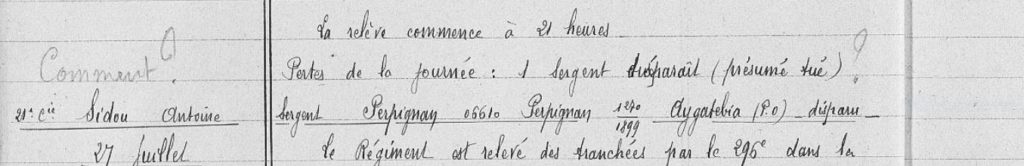 La relève commence à 21 heures
Comment ?
Pertes de la journée : 1 Sergent disparaît (présumé tué) ?
21e Cie Sidou Antoine Sergent Perpignan 05610 Perpignan 1270/1899 Aygatebia (P.O) disparu
27 Juillet Le Régiment est relevé des tranchées par le 296e dans la